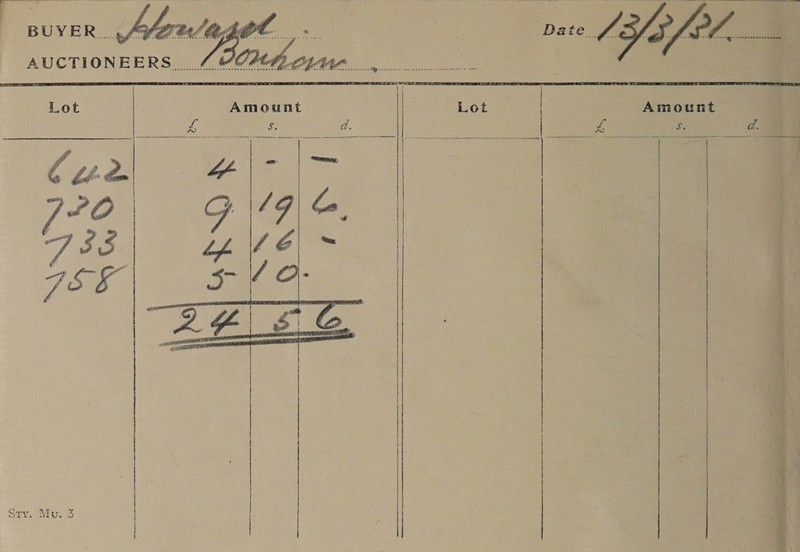 BUYER Howard Date 13/3/31.
AUCTIONEERS Bonham
Lot Amount Lot Amount
£ s. d. £ s. d.
642 4 - -
730 9 19 6.
733 4 16 -
758 5 10 -
24 5 6
STY. MU. 3